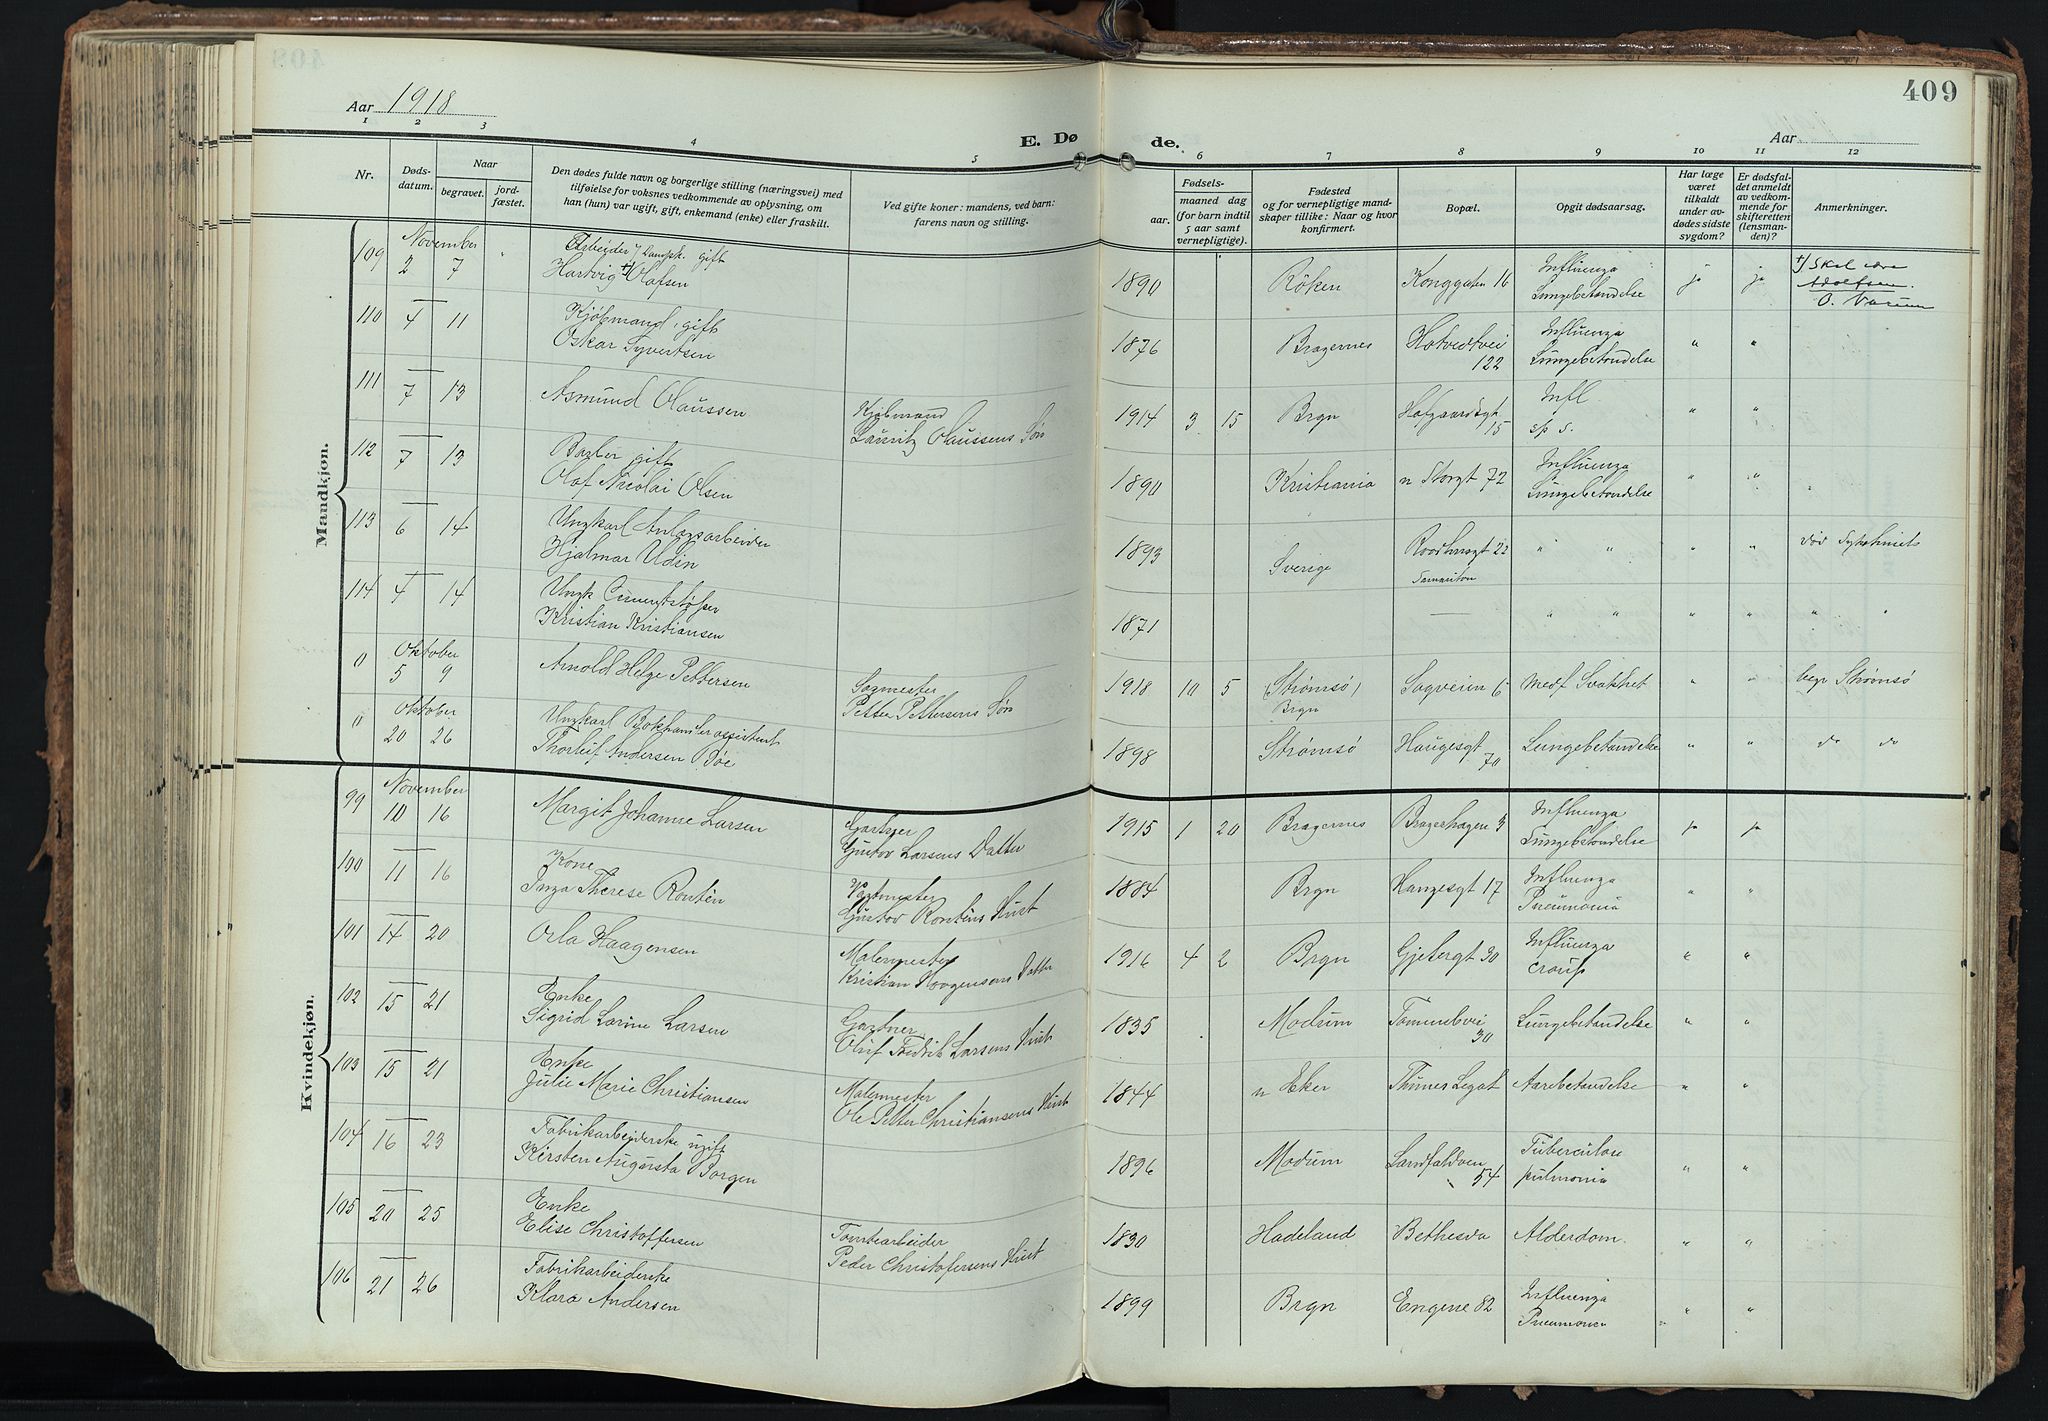 409
Aar 1918
E. Dø de.
Aar
1 2 3 4 5 6 7 8 9 10 11 12
Nr.
Døds-
datum.
Naar
begravet.
jord-
fæstet.
Den dødes fulde navn og borgerlige stilling (næringsvei) med
tilføielse for voksnes vedkommende av oplysning, om
han (hun) var ugift, gift, enkemand (enke) eller fraskilt.
Ved gifte koner: mandens, ved barn:
farens navn og stilling.
Fødsels-
aar.
maaned dag
(for barn indtil
5 aar samt
vernepligtige).
Fødested
og for vernepligtige mand-
skaper tillike: Naar og hvor
konfirmert.
Bopæl.
Opgit dødsaarsag.
Har læge
været
tilkaldt
under av-
dødes sidste
sygdom?
Er dødsfal-
det anmeldt
av vedkom-
mende for
skifteretten
(lensman-
den)?
Anmerkninger.
Mandkjøn.
109 November 2 7 " Arbeider gift
Hartvig +) Olafsen 1890 Røken Konggaten 16 Influenza
Lungebetændelse ja ja +) Skal være
Adolfsen.
110 4 11 Kjøbmand, gift
Oskar Syvertsen 1876 Bragernes Hotvedtvei
122 Influenza
Lungebetændelse " "
111 7 13 Asmund Olaussen Kjøbmand
Lauritz Olaussens Søn 1914 3 15 Brgn Hofgaardsgt
15 Infl.
sp s. " "
112 7 13 gift
Olaf Nicolai Olsen 1890 Kristiania n Storgt 72 Influenza
Lungebetændelse " "
113 6 14 Ungkarl Anlægsarbeider
Hjalmar Udin 1893 Sverige Raadhusgt 22
Samariton " " " " død
114 4 14 Ungk Cementstøper
Kristian Kristiansen 1871 — " " " " " "
0 Oktober 5 9 Arnold Helge Pettersen Sagmester
Petter Pettersens Søn 1918 10 5 (Strømsø)
Brgn Sagveien 6 Medf Svakhet " " begr Strømsø
0 Oktober 20 26 Ungkarl Bokhandlerassistent
Thorleif Andersen Bøe 1898 Strømsø Haugesgt
70 Lungebetændelse " " do do
Kvindekjøn.
99 November 10 16 Margit Johanne Larsen Gartner
Gustav Larsens Datter 1915 1 20 Bragernes Bragerhagen 3 Influenza
Lungebetændelse ja ja
100 11 16 Kone
Inga Therese Rontén Vagtmester
Gustav Ronténs Hust 1884 Brgn Haugesgt 17 Influenza
Pneumonia " "
101 14 20 Orla Haagensen Malermester
Kristian Haagensens Datter 1916 4 2 Brgn Gjetergt 30 Influenza
croup " "
102 15 21 Enke
Sigrid Larine Larsen Gartner
Oluf Fredrik Larsens Hust 1835 Modum
30 Lungebetændelse " "
103 15 21 Enke
Julie Marie Christiansen Malermester
Ole Petter Christiansens Hust 1844 n Eker Thornes Legat Aarebetændelse " "
104 16 23 Fabrikarbeiderske ugift
Kirsten Augusta Borgen 1896 Modum Landfaldøen
54 Tuberculose
pulmonia " "
105 20 25 Enke
Elise Christoffersen Tomtearbeider
Peder Christofersens Hust 1830 Hadeland Bethesda Alderdom. " "
106 21 26 Fabrikarbeiderske
Klara Andersen 1899 Brgn Engene 82 Influenza
Pneumonia " "